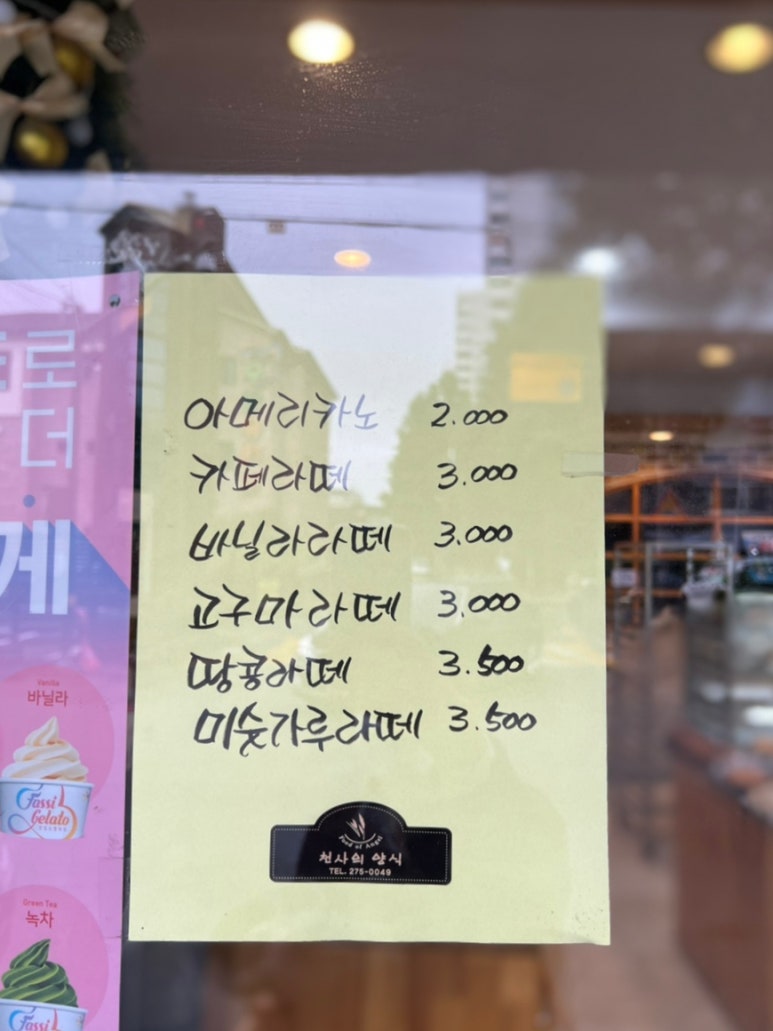 로
더
게
아메리카노 2.000
카페라떼 3.000
바닐라라떼 3.000
고구마라떼 3.000
땅콩라떼 3.500
미숫가루라떼 3.500
Food of Angel
천사의 양식
TEL. 275-0049
Vanilla
바닐라
Fassi
Gelato
Green Tea
녹차
Fassi